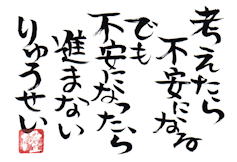 考えたら
不安になる
でも
不安になったら
進まない
りゅうせい